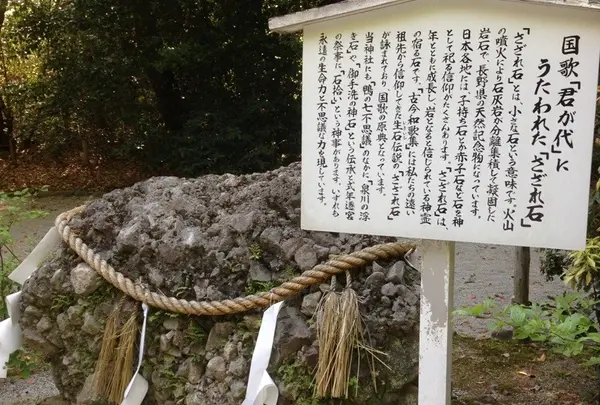 国歌「君が代」に
うたわれた「さざれ石」
「さざれ石」とは、小さな石という意味です。火山
の噴火により石灰岩が分離集積して凝固した
岩石で、長野県の天然記念物になっています。
日本各地には、子持ち石とか赤子石などと石を神
として祀る信仰がたくさんあります。さざれ石は、
年とともに成長し、岩となると信じられている神霊
の宿る石です。「古今和歌集」には私たちの遠い
祖先から信仰してきた生石伝説の「さざれ石」
が詠まれており、国歌の原典となっています。
当神社にも「鴨の七不思議」のなかに、泉川の浮
き石や、「御手洗の神石」という伝承と式年遷宮
の祭事に「石拾」という神事があります。いずれも
永遠の生命力と不思議な力を現しています。